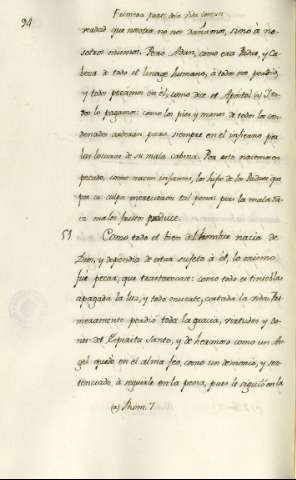 94
Primera parte de la vida
maldad que nosotros no nos dañamos, sino à no
sotros mismos. Pero Adan, como era Padre, y Ca
beza de todo el linage humano, à todos nos perdió,
y todos pecamos en él, como dice el Apóstol (a) y to
dos lo pagamos: como los pies y manos de todos los con
denados arderàn para siempre en el infierno por
las locuras de su mala cabeza. Por esto nacemos en
pecado, como nacen infames, los hijos de los Padres que
por su culpa merecieron tal pena: pues la mala
raiz malos frutos produce.
51 Como todo el bien del hombre nacia de
Dios, y dependia de estar sugeto à él, lo mismo
fue pecar, que trastornar: como todo es tinieblas
apagada la luz, y todo muerte, cortada la vida. Pri
meramente perdió toda la gracia, virtudes y do
nes del Espiritu Santo, y de hermoso como un An
gel quedó en el alma feo, como un demonio, y sen
tenciado, à seguirle en la pena, pues le siguió en la
(a) Rhom. 7